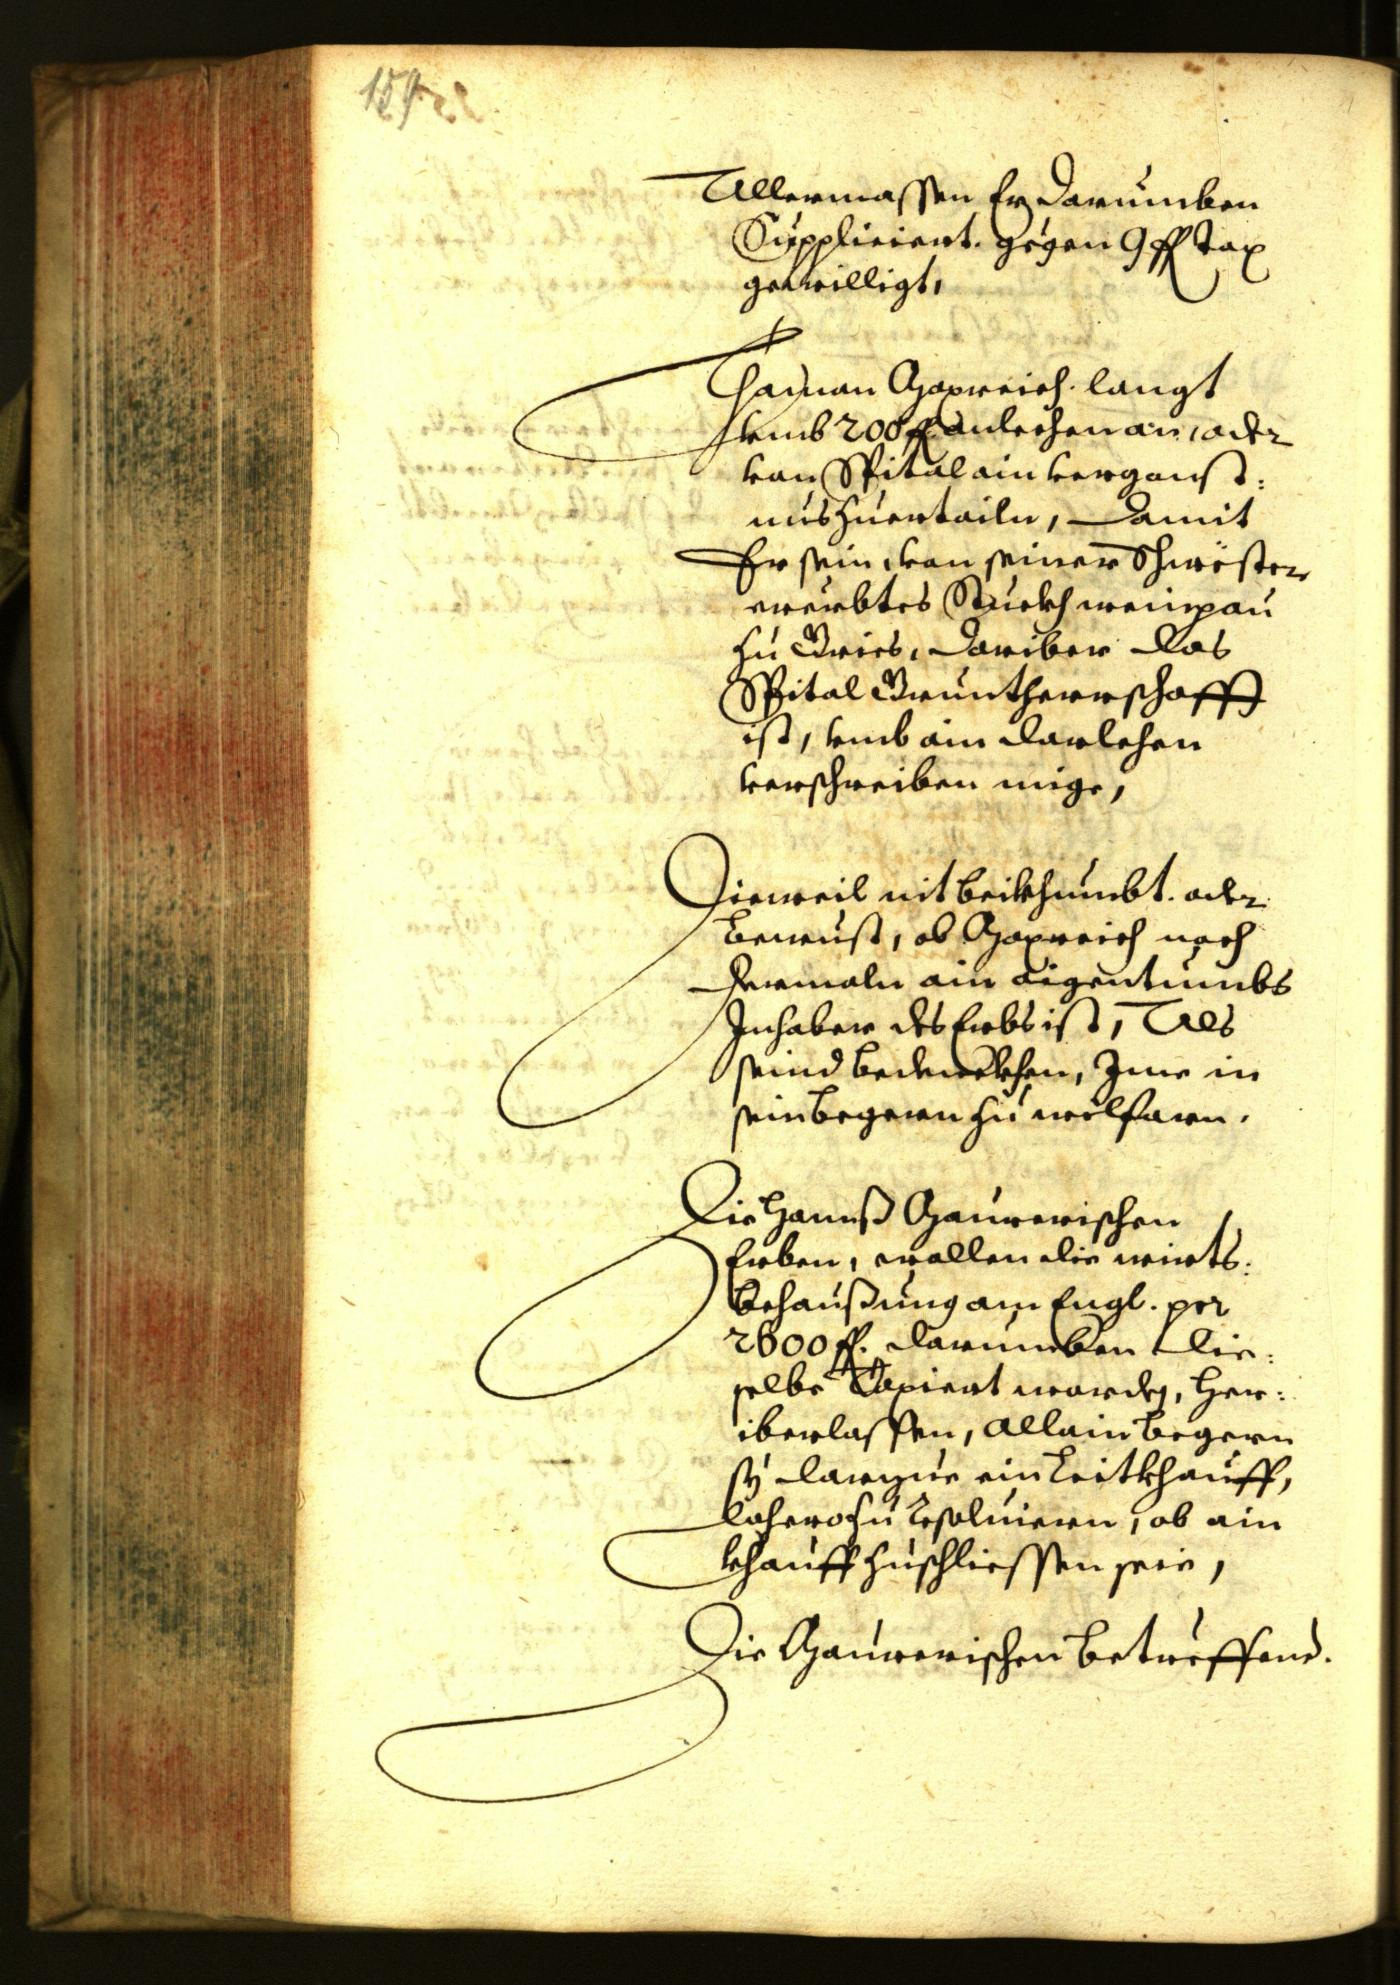 159
Allermassen Er darumben
Suppliciert. gegen 9 fl tax
gewilligt,
Haman Gaxreich. langt
vmb 200 fl. anlechen an, oder
von Spital ain vergonst:
nus zuertailn, damit
Er sein, von seiner Schwöster
ererbtes Stuckh weinpau
zu Gries, dariber das
Spital Gruntherrschafft
ist, vmb ain darlechen
verschreiben mige,
Dieweil nit beikhumbt. oder
bewust, ob Gaxreich noch
dermaln ain aigentumbs
Inhaber des Erbs ist, Als
seind bedenckhen, Ime in
sein begern zu wilfarn.
Die Hannß Gaurerischen
Erben, wollen die wirts:
behaußung am Engl. per
2600 fl. darumben die:
selbe Taxiert worden, her:
iberlassen, allain begern
sy darzue ein Leitkhauff,
dahero zu resoluiern, ob ain
khauff zuschliessen seie,
Die Gaurerischen betreffend.